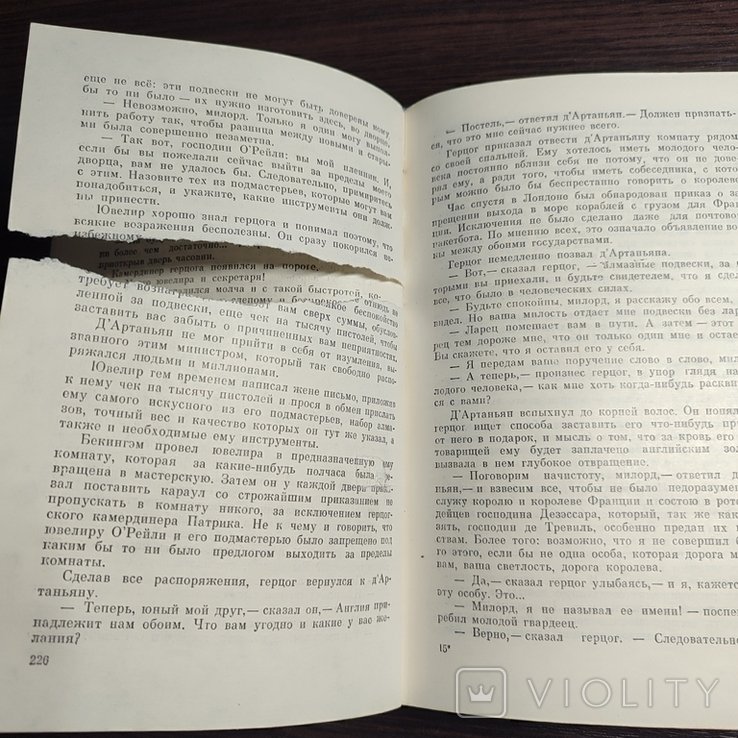 еще не всё: эти подвески не могут быть доверены кому
бы то ни было — их нужно изготовить здесь, во дворце.
— Невозможно, милорд. Только я один могу выпол-
нить работу так, чтобы разница между новыми и стары-
ми была совершенно незаметна.
— Так вот, господин О'Рейли: вы мой пленник. И,
если бы вы пожелали сейчас выйти за пределы моего
дворца, вам не удалось бы. Следовательно, примиритесь
с этим. Назовите тех из подмастерьев, которые могут вам
понадобиться, и укажите, какие инструменты они долж-
ны принести.
Ювелир хорошо знал герцога и понимал поэтому, что
всякие возражения бесполезны. Он сразу покорился не-
избежному
ни более чем достаточно...
приоткрыв дверь часовни.
Камердинер герцога появился на пороге.
ювелира и секретаря!
удалился молча и с такой быстротой, ко-
требует вознаграждения. Вот вам сверх суммы, обуслов-
ленной за подвески, еще чек на тысячу пистолей, чтобы
заставить вас забыть о причиненных вам неприятностях.
Д'Артаньян не мог прийти в себя от изумления, вы-
званного этим министром, который так свободно распо-
ряжался людьми и миллионами.
Ювелир тем временем написал жене письмо, приложив
к нему чек на тысячу пистолей и прося в обмен прислать
ему самого искусного из его подмастерьев, набор алма-
зов, точный вес и качество которых он тут же указал, а
также и необходимые ему инструменты.
Бекингэм провел ювелира в предназначенную ему
комнату, которая за какие-нибудь полчаса была пре-
вращена в мастерскую. Затем он у каждой двери прика-
зал поставить караул со строжайшим приказанием не
пропускать в комнату никого, за исключением герцог-
ского камердинера Патрика. Не к чему и говорить, что
ювелиру О'Рейли и его подмастерью было запрещено под
каким бы то ни было предлогом выходить за пределы
комнаты.
Сделав все распоряжения, герцог вернулся к д'Ар-
таньяну.
— Теперь, юный мой друг,— сказал он,— Англия при-
надлежит нам обоим. Что вам угодно и какие у вас же-
лания?
226
— Постель,— ответил д'Артаньян.— Должен признать-
ся, что это мне сейчас нужнее всего.
Герцог приказал отвести д'Артаньяну комнату рядом
со своей спальней. Ему хотелось иметь молодого чело-
века постоянно вблизи себя не потому, что он не дове-
рял ему, а ради того, чтобы иметь собеседника, с котор
рым можно было бы беспрестанно говорить о королеве
Час спустя в Лондоне был обнародован приказ о за-
прещении выхода в море кораблей с грузом для Фран
ции. Исключения не было сделано даже для почтово
пакетбота. По мнению всех, это означало объявление во
ны между обоими государствами.
Герцог немедленно позвал д'Артаньяна.
— Вот,— сказал герцог, — алмазные подвески, за ко
торыми вы приехали, и будьте свидетелем, что я сдел
все, что было в человеческих силах.
— Будьте спокойны, милорд, я расскажу обо всем,
видел. Но ваша милость отдает мне подвески без лар
— Ларец помешает вам в пути. А затем — этот
рец тем дороже мне, что он только один мне и остае
Вы скажете, что я оставил его у себя.
— Я передам ваше поручение слово в слово, мил
— А теперь,— произнес герцог, в упор глядя на
лодого человека,— как мне хоть когда-нибудь расквит
ся с вами?
Д'Артаньян вспыхнул до корней волос. Он понял
герцог ищет способа заставить его что-нибудь пр
от него в подарок, и мысль о том, что за кровь его
товарищей ему будет заплачено английским зол
в нем глубокое отвращение.
— Поговорим начистоту, милорд,— ответил д
ньян,— и взвесим все, чтобы не было недоразуме
служу королю и королеве Франции и состою в рот
дейцев господина Дезэссара, который, так же как
зять, господин де Тревиль, особенно предан их
ствам. Более того: возможно, что я не совершил б
го этого, если бы не одна особа, которая дорога м
вам, ваша светлость, дорога королева.
— Да,— сказал герцог улыбаясь,— и я, кажетс
эту особу. Это...
— Милорд, я не называл ее имени! — поспе
ребил молодой гвардеец.
— Верно,— сказал герцог. — Следовательно
15*
VIOLITY